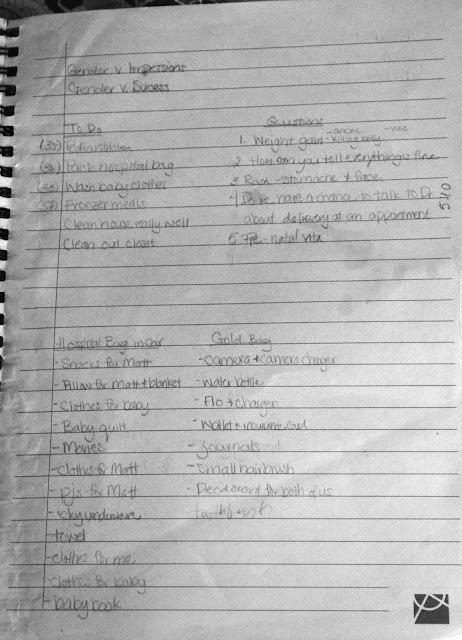 Gender v Impressions
Gender v. Sucess
To Do
(35) Pediatrician
(36) Pack hospital bag
Wash baby clothes
Freezer meals
Clean house really well
Clean out closet
Questions
1. Weight gain
2 How can you tell everything is fine
3 Rash - stomache & face
4 Do we have a chance to talk to Dr
about delivery at an appointment
5 Pre-natal vita
5/10
Hospital Bag in Car
- Snacks for Matt
- Pillow for Matt + blanket
- Clothes for baby
- Baby quilt
- Movies
- Clothes for Matt
- Pjs for Matt
- icky underwear
- towel
- clothes for me
- clothes for baby
- baby book
Gold Bag
- Camera + camera charger
- water bottle
- Flo + charger
- Wallet + insurance card
- journals
- Small hairbrush
- Deodorant for both of us
toothbrush